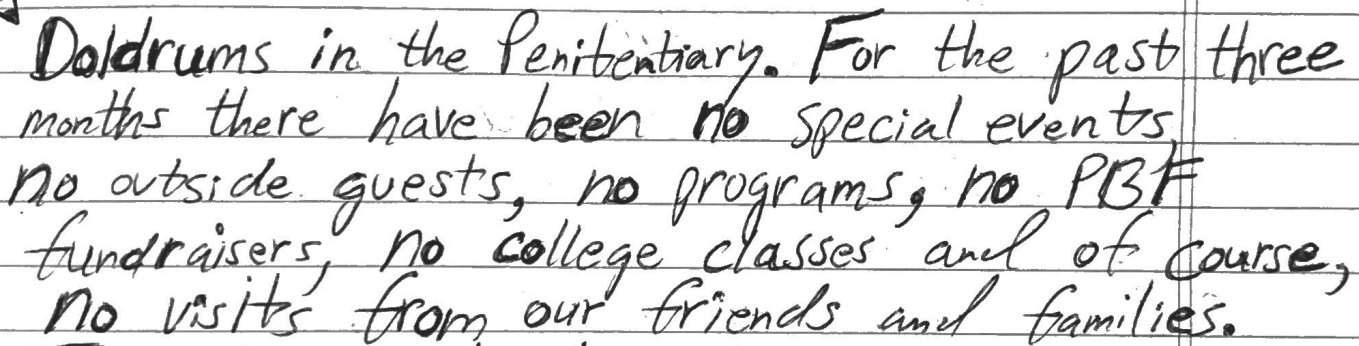 Doldrums in the Penitentiary. For the past three
months there have been no special events
no outside guests, no programs, no PBF
fundraisers, no college classes and of course,
no visits from our friends and families.